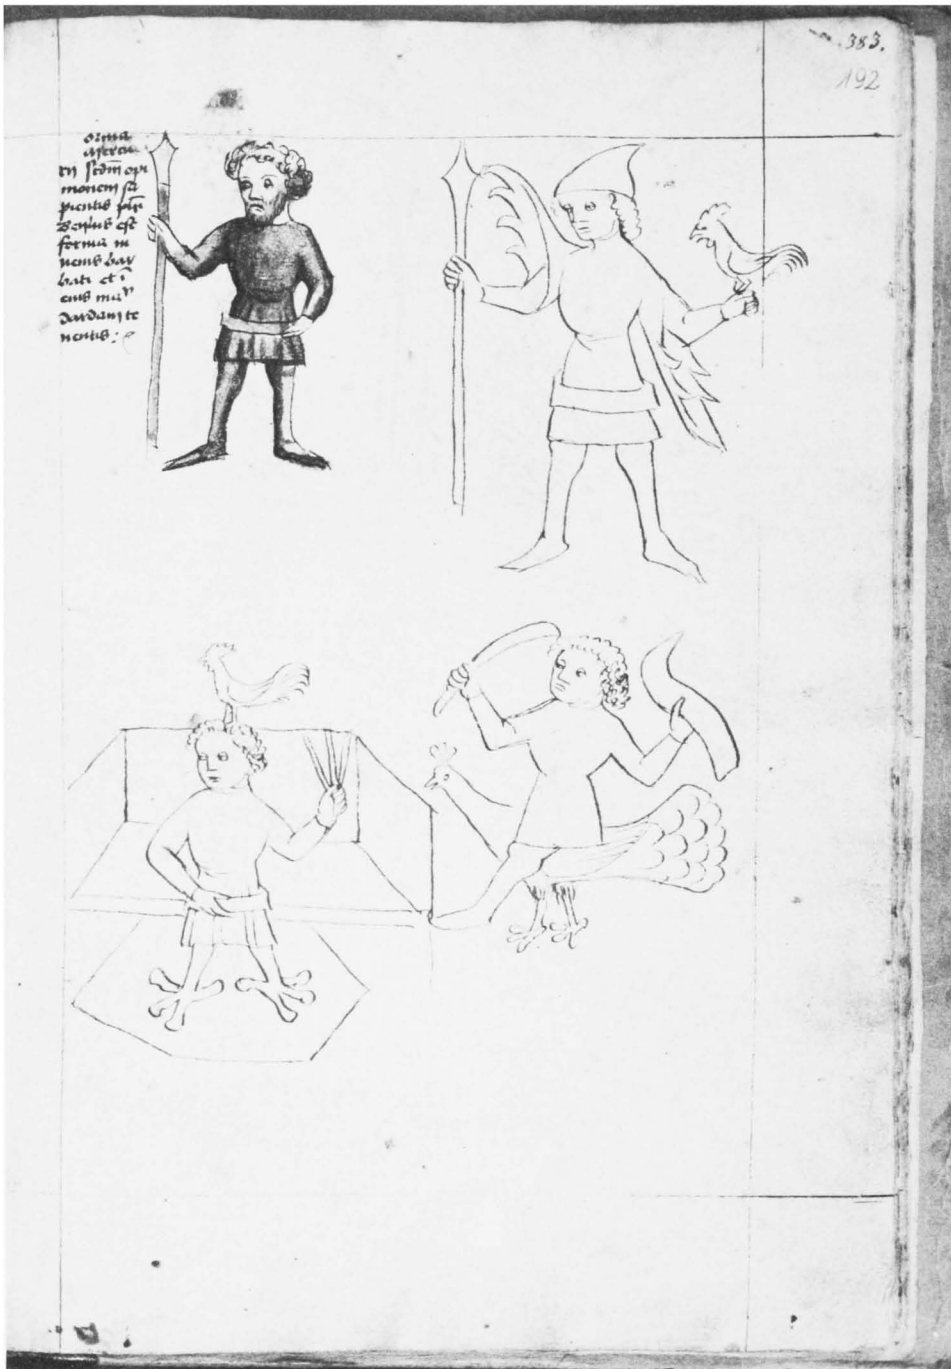 383.
192
orma
mercu
rij scdm opi
nionem sa
pientis pic
est
forma iu
uenis bar
bati et i
eius manu
dardam te
nentis :